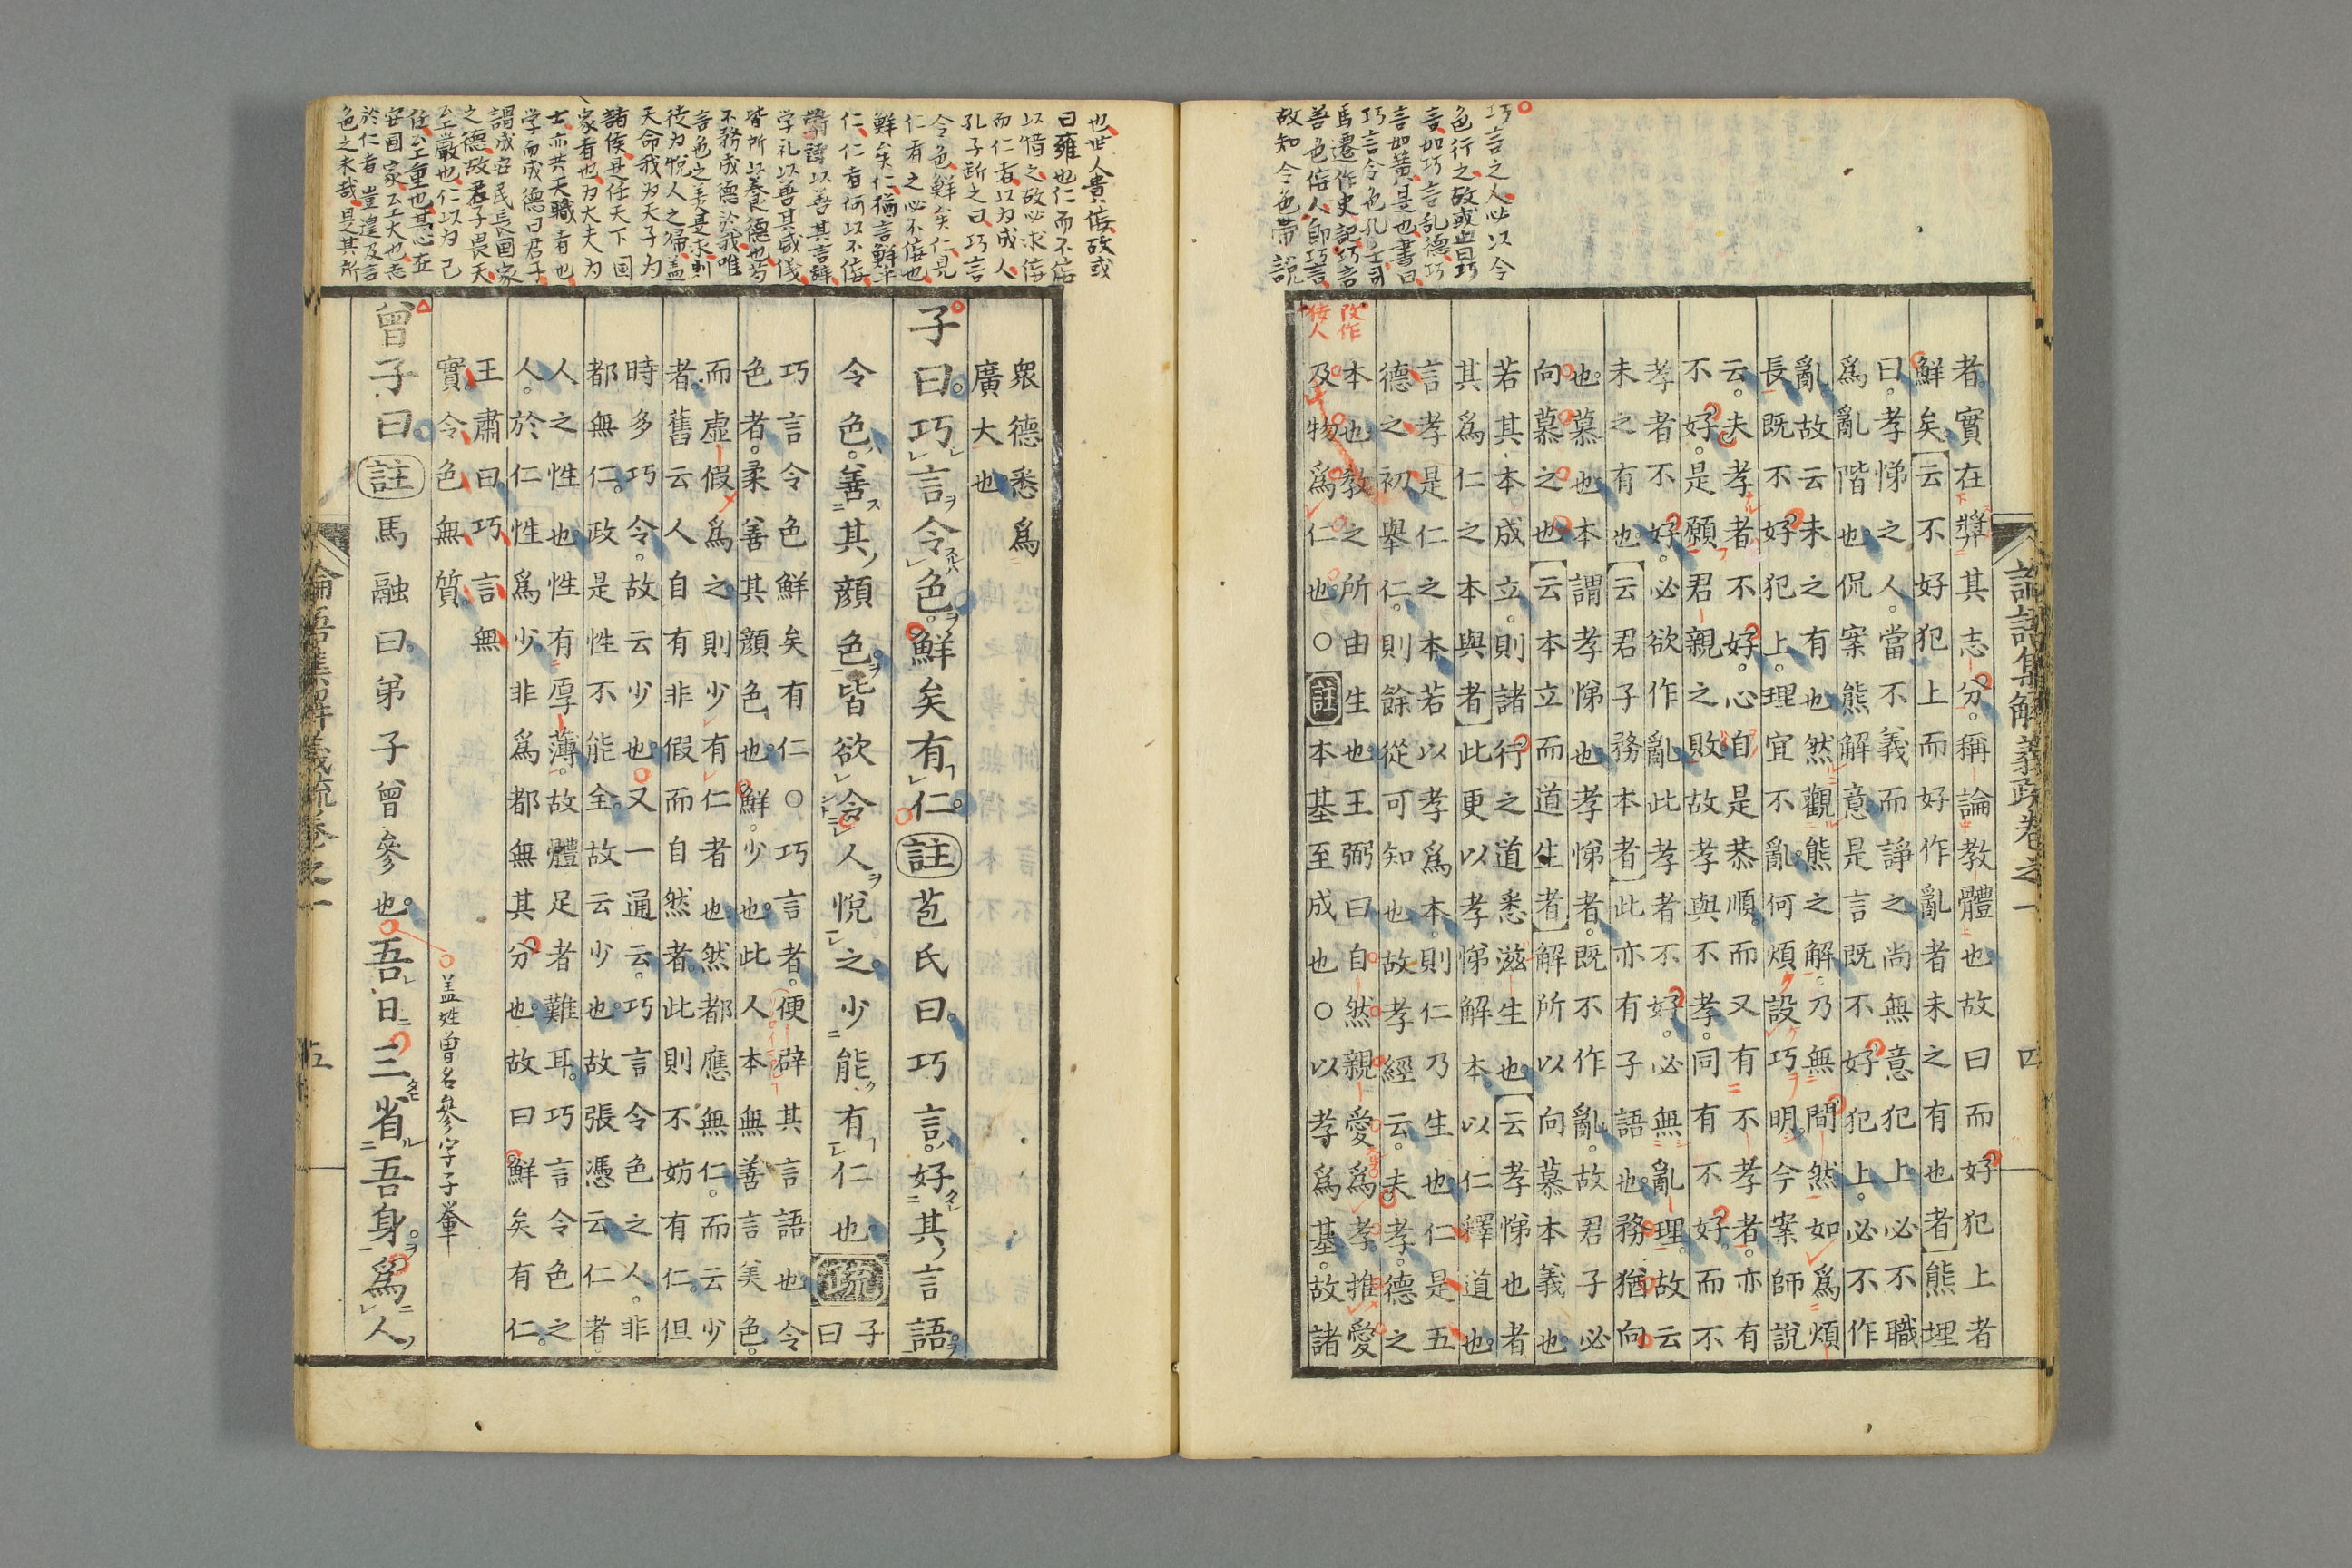 巧言之人必以令
色行之故或止曰巧
言如巧言乱德巧
言如簧是也書曰
巧言令色孔壬司
馬遷作史記巧言
善色佞人即巧言
故知令色帯說
論語集解義疏卷之一
四
者實在奬其志分稱論教體也故曰而好犯上者
鮮矣云不好犯上而好作亂者未之有也者熊埋
曰孝悌之人當不義而諍之尚無意犯上必不職
爲亂階也侃案熊解意是言既不好犯上必不作
亂故云未之有也然觀熊之解乃無間然如爲煩
長既不好犯上理宜不亂何煩設巧明今案師說
云夫孝者不好心自是恭順而又有不孝者亦有
不好是願君親之敗故孝與不孝同有不好而不
孝者不好必欲作亂此孝者不好必無亂理故云
未之有也云君子務本者此亦有子語也務猶向
也慕也本謂孝悌也孝悌者既不作亂故君子必
向慕之也云本立而道生者解所以向慕本義也
若其本成立則諸行之道悉滋生也云孝悌也者
其爲仁之本與者此更以孝悌解本以仁釋道也
言孝是仁之本若以孝爲本則仁乃生也仁是五
德之初舉仁則餘從可知也故孝經云夫孝德之
本也教之所由生也王弼曰自然親愛爲孝推愛
及物爲仁也○註本基至成也○以孝爲基故諸
改作
佞人
也世人貴佞故或
曰雍也仁而不佞
以惜之故必求佞
而仁者以为成人
孔子斷之曰巧言
令色鮮矣仁見
仁者之必不佞也
鮮矣仁猶言鮮乎
仁仁者何以不佞
學詩以善其言辞
学礼以善其威儀
皆所以養德也苟
不務成德於我唯
言色之美是求則
徒为悅人之歸盖
天命我为天子为
諸侯毋任天下国
家者也为大夫为
士亦共天職者也
学而成德曰君子
謂成安民長国家
之德故君子畏天
至嚴也仁以为己
任公工重也其心在
安国家公工大也志
於仁者豈遑及言
色之末哉是其所
衆德悉爲
廣大也
子曰巧言令色鮮矣有仁註苞氏曰巧言好其言語
令色善其顏色皆欲令人悅之少能有仁也疏子曰
巧言令色鮮矣有仁○巧言者便辟其言語也令
色者柔善其顏色也鮮少也此人本無善言美色
而虛假爲之則少有仁者也然都應無仁而云少
者舊云人自有非假而自然者此則不妨有仁但
時多巧令故云少也又一通云巧言令色之人非
都無仁政是性不能全故云少也故張憑云仁者
人之性也性有厚薄故體足者難耳巧言令色之
人於仁性爲少非爲都無其分也故曰鮮矣有仁
王肅曰巧言無
實令色無質
盖姓曽名參字子輿
曾子曰註馬融曰弟子曾參也吾日三省吾身爲人
論語集解義疏卷之一
五